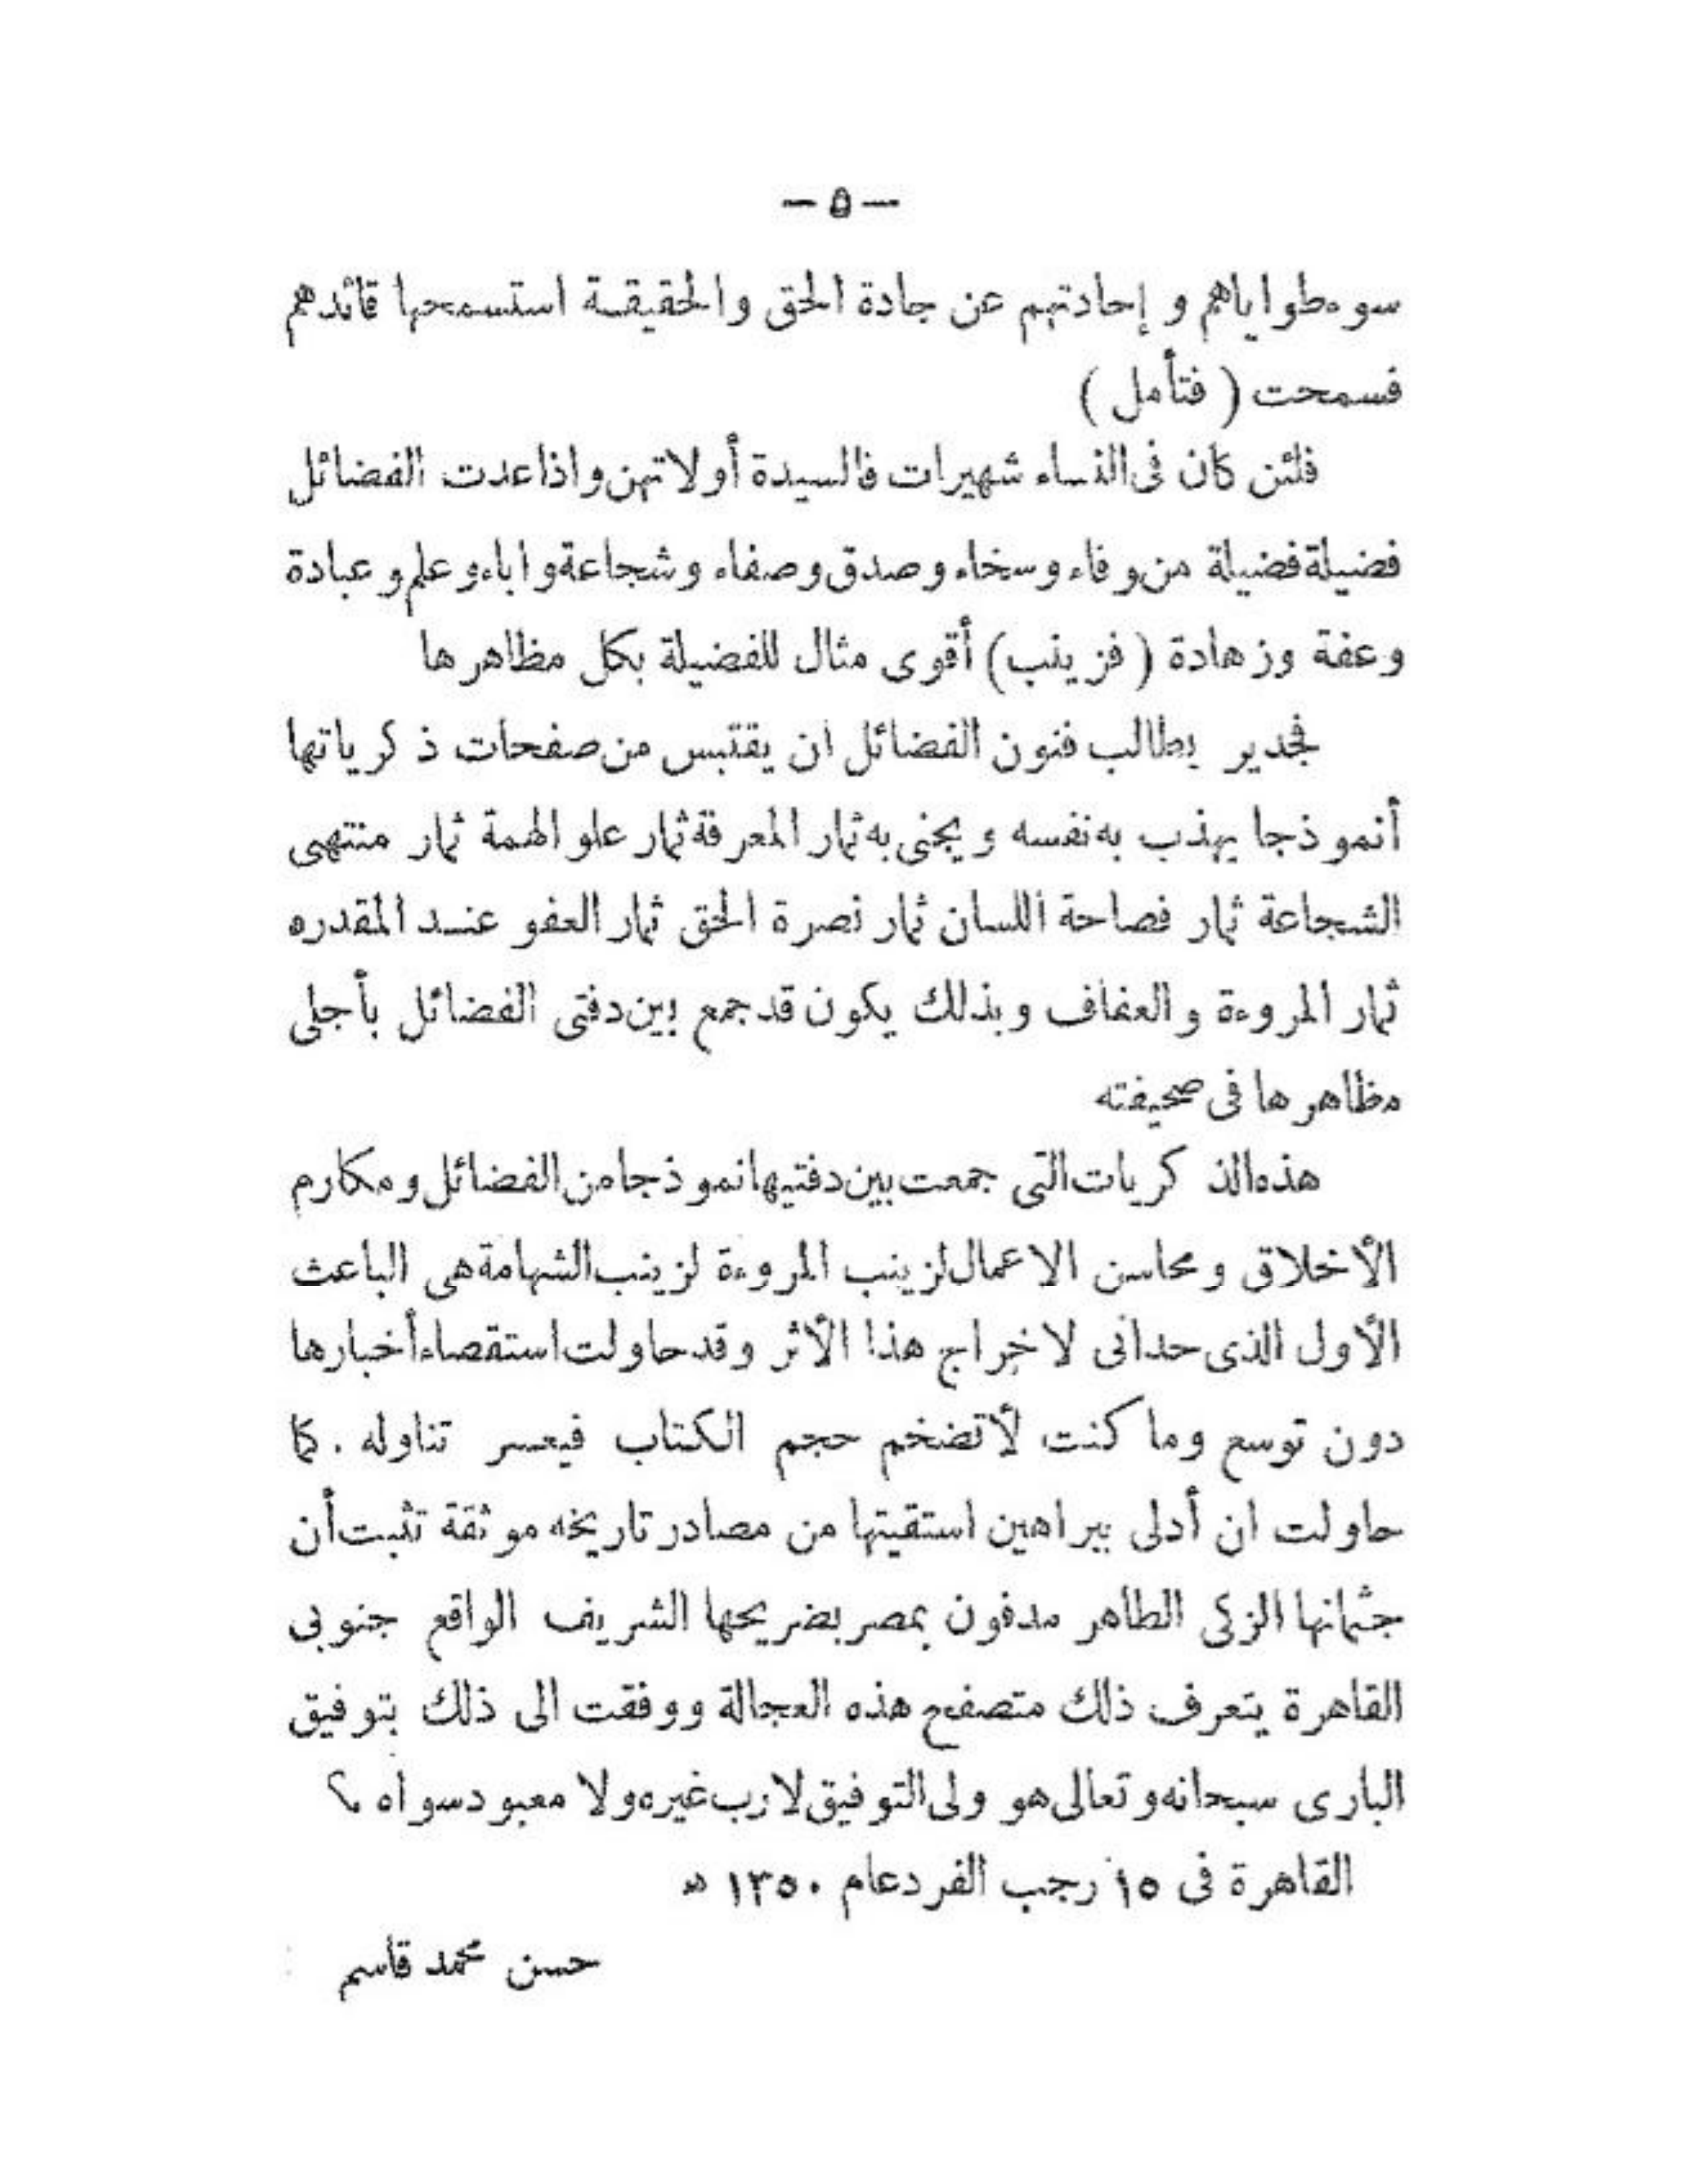 — ٥ —
سوء طواياهم و إحادتهم عن جادة الحق والحقيقة استسمحها قائدهم
فسمحت ( فتأمل )
فلئن كان فى النساء شهيرات فالسيدة أولاتهن واذا عدت الفضائل
فضيلة فضيلة من وفاء وسخاء وصدق وصفاء وشجاعة واباء وعلم وعبادة
وعفة وزهادة ( فزينب ) أقوى مثال للفضيلة بكل مظاهرها
فجدير بطالب فنون الفضائل ان يقتبس من صفحات ذكرياتها
أنموذجا يهذب به نفسه ويجنى به ثمار المعرفة ثمار علو الهمة ثمار منتهى
الشجاعة ثمار فصاحة اللسان ثمار نصرة الحق ثمار العفو عند المقدره
ثمار المروءة والعفاف وبذلك يكون قد جمع بين دفتى الفضائل بأجلى
مظاهرها فى صحيفته
هذه الذكريات التى جمعت بين دفتيها نموذجا من الفضائل ومكارم
الأخلاق ومحاسن الاعمال لزينب المروءة لزينب الشهامة هى الباعث
الأول الذى حدانى لاخراج هذا الأثر وقد حاولت استقصاء أخبارها
دون توسع وما كنت لأتضخم حجم الكتاب فيعسر تناوله . كما
حاولت ان أدلى ببراهين استقيتها من مصادر تاريخه موثقة تثبت أن
جثمانها الزكى الطاهر مدفون بمصر بضريحها الشريف الواقع جنوبى
القاهرة يتعرف ذلك متصفح هذه العجالة ووفقت الى ذلك بتوفيق
البارى سبحانه وتعالى هو ولى التوفيق لا رب غيره ولا معبود سواه
القاهرة فى ١٥ رجب الفرد عام ١٣٥٠ هـ
حسن محمد قاسم